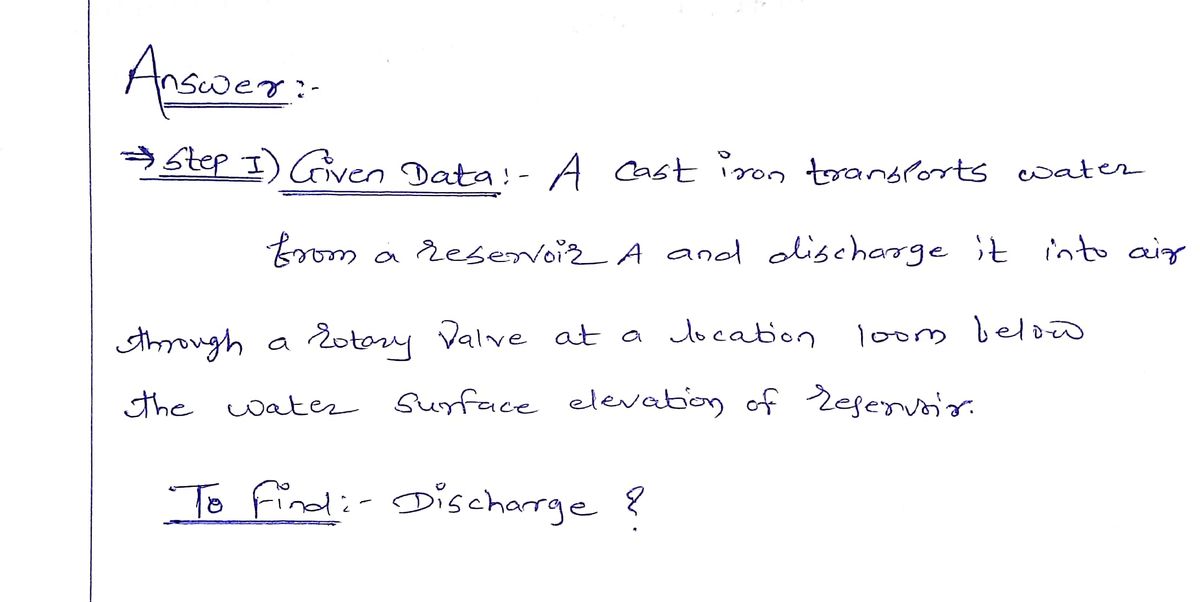 Answer :-
⇒ Step I) Given Data :- A cast iron transports water
from a reservoir A and discharge it into air
through a rotary valve at a location 100m below
the water surface elevation of reservoir.
To Find :- Discharge ?